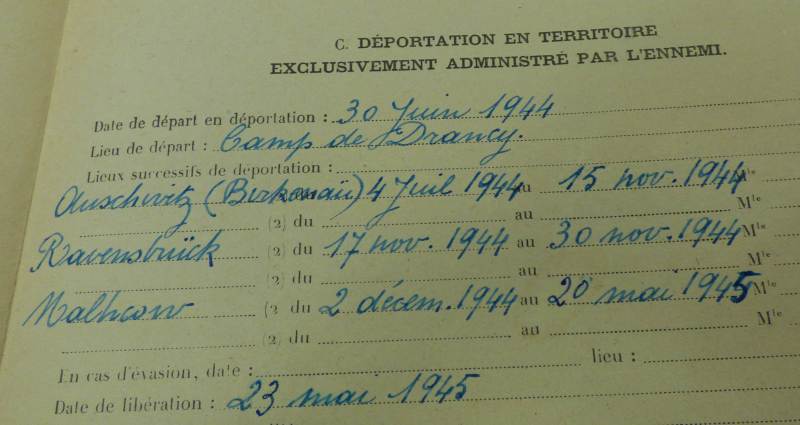 C. DÉPORTATION EN TERRITOIRE
EXCLUSIVEMENT ADMINISTRÉ PAR L'ENNEMI.
Date de départ en déportation : 30 Juin 1944
Lieu de départ : Camp de Drancy.
Lieux successifs de déportation :
Auschwitz (Birkenaü) 4 Juil 1944 au 15 nov. 1944 Mle
(2) du au Mle
Ravensbrück (2) du 17 nov. 1944 au 30 nov. 1944 Mle
(2) du au Mle
Malhcow (2 du 2 décem. 1944 au 20 mai 1945 Mle
(2) du au Mle
En cas d'évasion, date : lieu :
Date de libération : 23 mai 1945